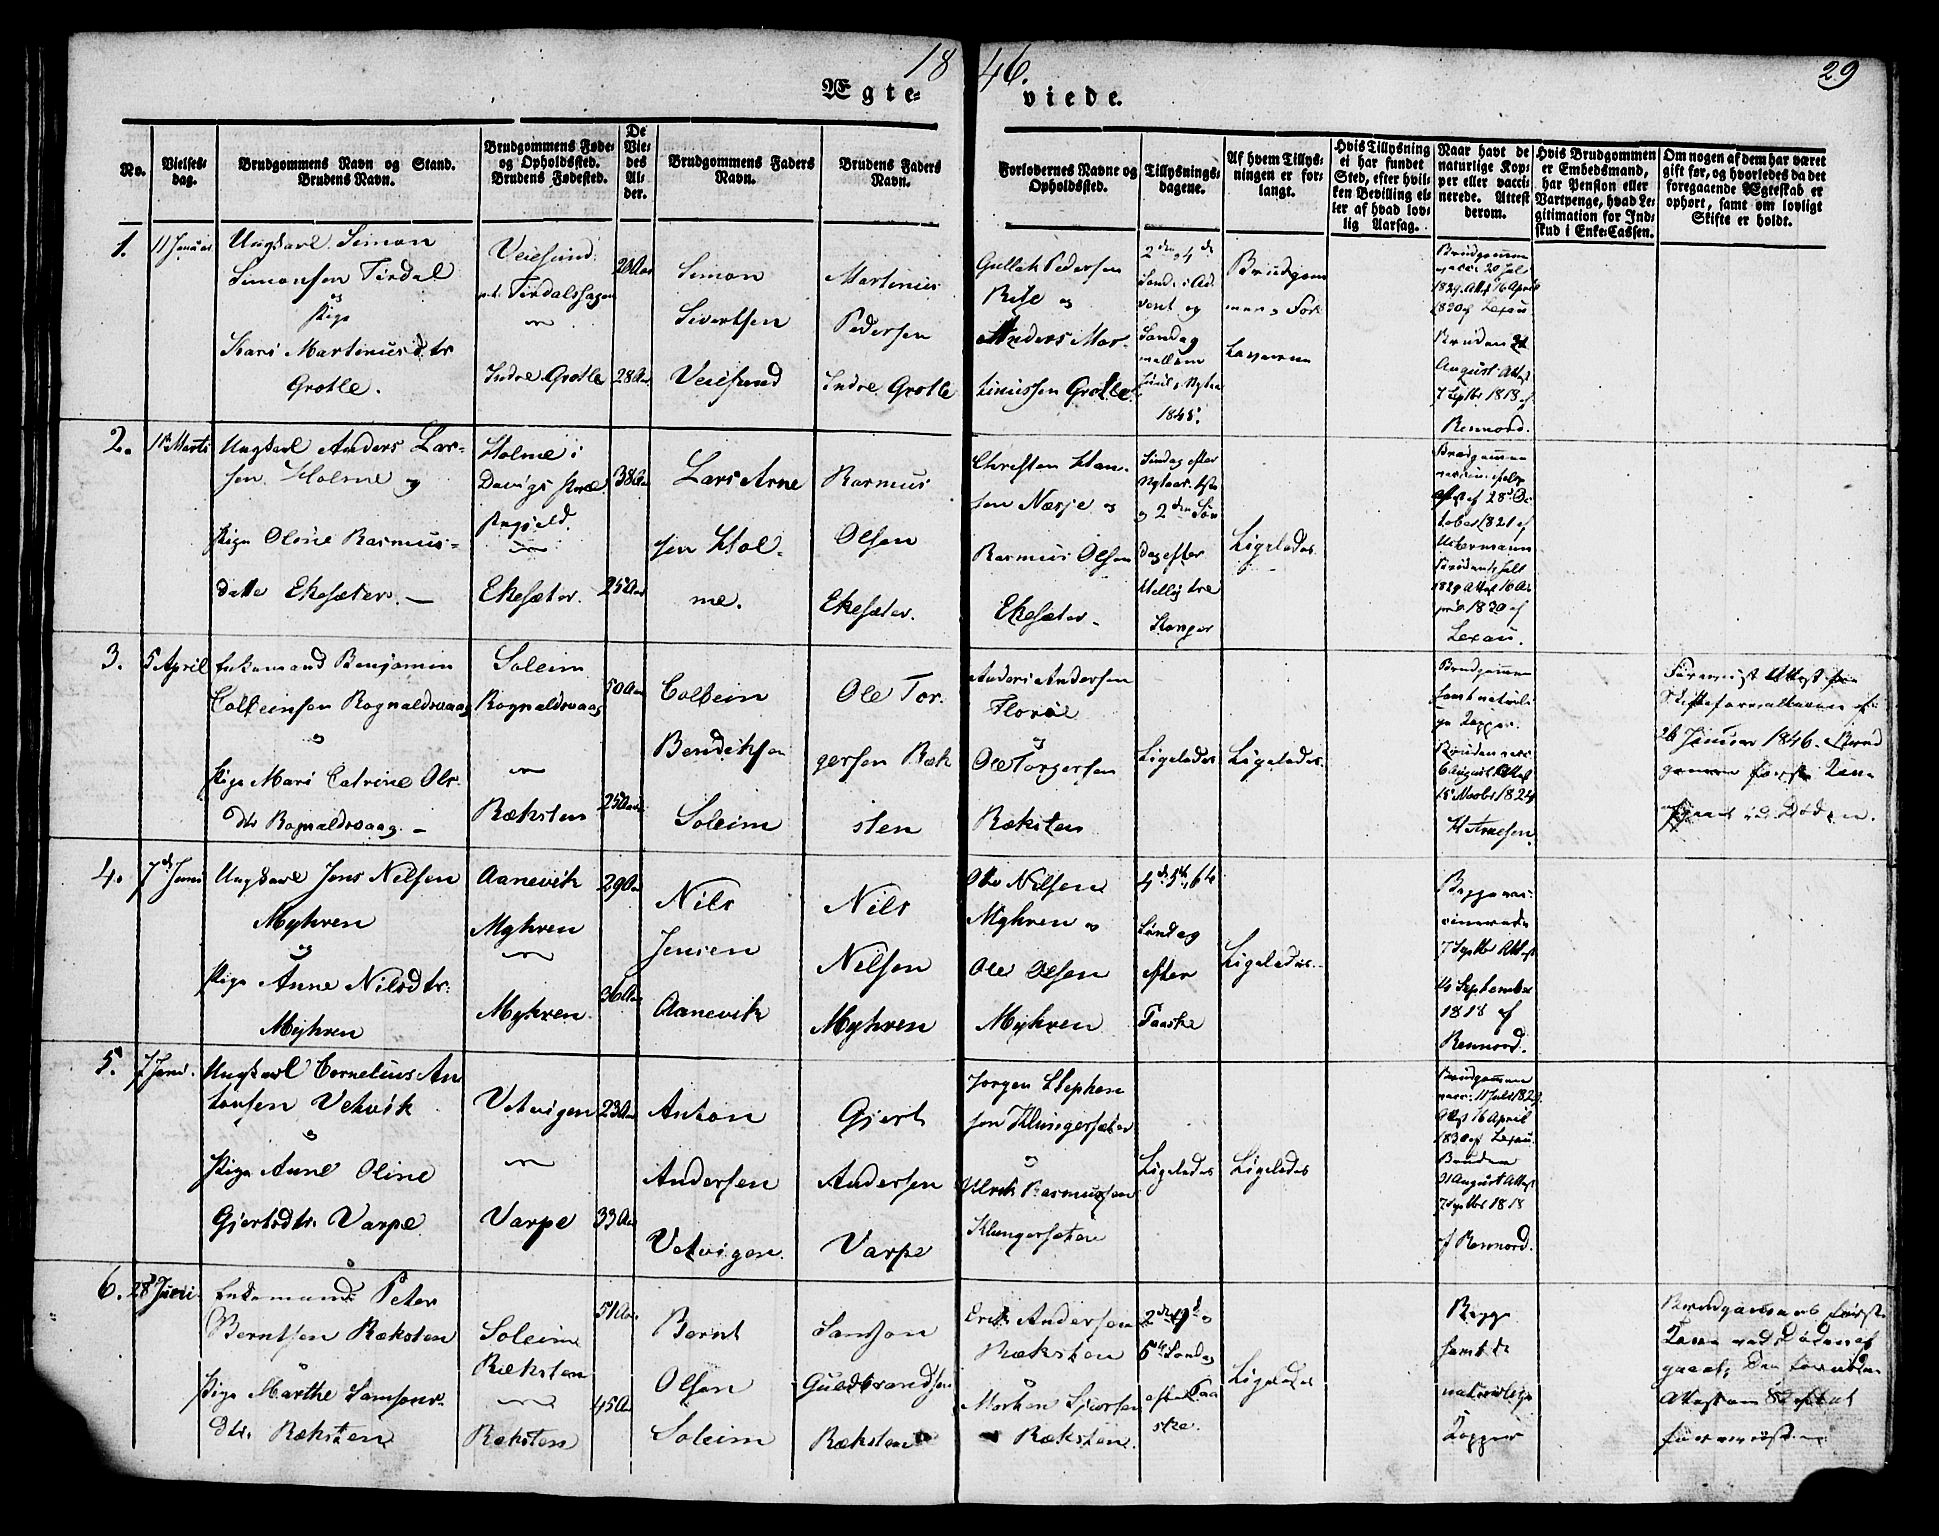 18 46.
29
Ægte-
viede.
No.
Vielses-
dag.
Brudgommens Navn og Stand.
Brudens Navn.
Brudgommens Føde-
og Opholdssted.
Brudens Fødested.
De
Vie-
des
Al-
der.
Brudgommens Faders
Navn.
Brudens Faders
Navn.
Forlovernes Navne og
Opholdssted.
Tillysnings-
dagene.
Af hvem Tillys-
ningen er for-
langt.
Hvis Tillysning
ei har fundet
Sted, efter hvil-
ken Bevilling el-
ler af hvad lov-
lig Aarsag.
Naar havt de
naturlige Kop-
per eller vacci-
nerede. Attest
derom.
Hvis Brudgommen
er Embedsmand,
har Pension eller
Vartpenge, hvad Le-
gitimation for Ind-
skud i Enke-Cassen.
Om nogen af dem har været
gift før, og hvorledes da det
foregaaende Ægteskab er
ophørt, samt om lovligt
Skifte er holdt.
1.
11 Januar
Ungkarl Simon
Simonsen Tirdal
og
Pige
Kari Martinusdtr
Grotle.
Veiesund
Tirdalshagen
Indre Grotle
28 Aar
Simon
Sivertsen
Veiesund
Martinus
Pedersen
Indre Grotle
Gullak Pedersen
og
Anders Mar-
tinussen Grotle
2den 4de
Sønd. i Ad-
vent og
Søndag
mellem
Juul og Nytaar
1845.
Brudgom-
men og For-
loverne
Brudgommen
vacc. 20 Juli
1829 Att. 16 April
1830 af Lexau
Bruden 21
August Attest
7 Septbr 1818 af
Rennord.
2.
Marts
Ungkarl Anders Lar-
sen Holme og
Pige Oline Rasmus-
datte Ekesæter. —
Holme i
Davigs Præ
stegjeld.
Ekesæter.
38 Aar
25 Aar
Lars Arne
sen Hol-
me.
Rasmus
Olsen
Ekesæter.
Christen Han-
sen Næsje og
Rasmus Olsen
Ekesæter.
Søndag efter
Nytaar
og 2den Søn
dag efter
Hellig tre
Konger
Ligeledes.
Brudgommen
28de Oc-
tober 1821 af
1829 Attest 16 A-
pril 1830 af
Lexau.
3.
5 April
Enkemand Benjamin
Colbeinsen Rognaldsvaag
og
Pige Mari Catrine Ols-
dtr Rognaldsvaag. —
Soleim
Rognaldsvaag
Ræksten
50 Aar
25 Aar
Colbein
Bendiksen
Soleim
Ole Tor-
gersen Ræk
sten
Anders Andersen
Florøe
og
Ole Torgersen
Ræksten
Ligeledes
Ligeledes.
Brudgommen
havt naturli-
ge Kopper.
Bruden vacc.
6 August Attest
18 Novbr 1824
H Arnesen.
Forevist Attest fra
Skifteforvalteren af
26 Januar 1846. Brud
gommens første Kone
afgaaet ved Døden.
4.
7de Juni
Ungkarl Jens Nilsen
Myhren
og
Pige Anne Nilsdtr.
Myhren
Aanevik
Myhren
Myhren.
29 Aar
36 Aar
Nils
Jensen
Aanevik
Nils
Nilsen
Myhren
Ole Nilsen
Myhren og
Ole Olsen
Myhren
4de 5te 6te
Søndag
efter
Paaske
Ligeledes.
Begge vac-
cinerede
7 Septbr Attest
4 September
1818 af
Rennord.
5.
7 Juni.
Ungkarl Cornelius An
tonsen Vetvik
og
Pige Anne Oline
Gjertsdtr. Varpe
Vetvigen
Varpe
23 Aar
33 Aar
Anton
Andersen
Vetvigen.
Gjert
Andersen
Varpe
Jørgen Stephen
sen Klungersæter
og
Ulrik Rasmussen
Klungersæten
Ligeledes
Ligeledes
Brudgommen
vacc. 11 Juli 1829.
Attest 16 April
1830 af Lexau.
Bruden
31 August Attest
7 Septbr 1818
af Rennord.
6.
28 Juni.
Enkemand Peter
Berntsen Ræksten
og
Pige Marthe Samsons-
dtr. Ræksten
Soleim
Ræksten
Ræksten
51 Aar
45 Aar
Bernt
Olsen
Soleim
Samson
Guldbrandsen
Ræksten
Erik Andersen
Ræksten
og
Morten Sjursen
Ræksten.
2den 4de og
5te Søndag
efter Paa
ske.
Ligeledes
Begge
havt de
naturlige
Kopper
Brudgommens første
Kone ved Døden af
gaaet, Den fornødne
Attest om Skiftet
forevist.